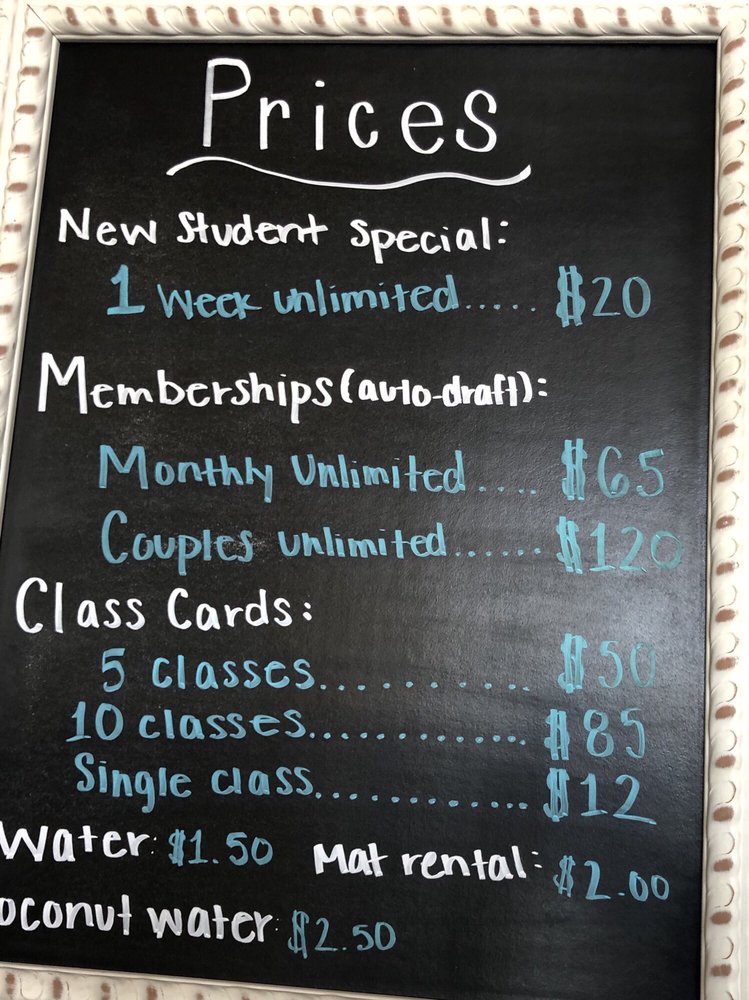 Prices
New Student Special:
1 Week unlimited..... $20
Memberships (auto-draft):
Monthly Unlimited .... $65
Couples unlimited...... $120
Class Cards:
5 classes............ $50
10 classes............. $85
Single class............. $12
Water: $1.50 Mat rental: $2.00
oconut water: $2.50